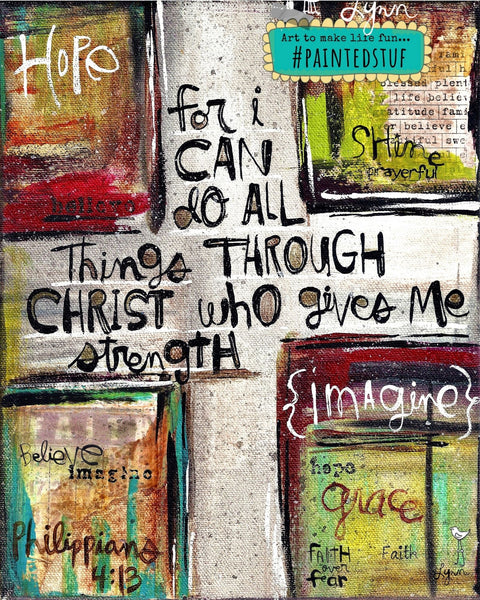 Hope
believe
Lynn
Art to make life fun...
#PAINTEDSTUF
blessed plent
life believ
atitude fami
r believe e
Shine
prayerful
for i
CAN
do ALL
Things THROUGH
CHRIST who gives Me
strengTH
Believe
imagine
Philippians
4:13
{imagine}
hope
grace
FAITH
over
fear
Faith
Lynn